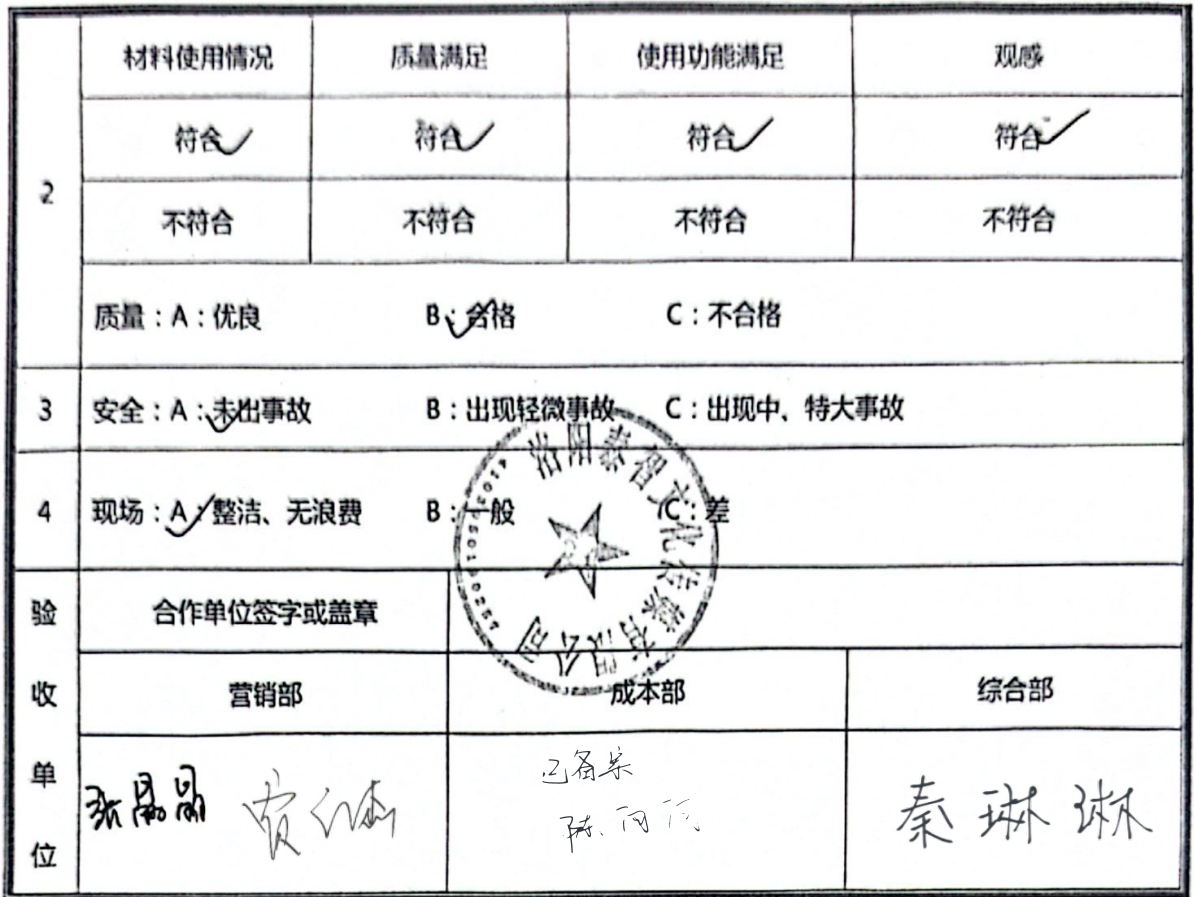 2
材料使用情况 质量满足 使用功能满足 观感
符合✓ 符合✓ 符合✓ 符合✓
不符合 不符合 不符合 不符合
质量：A：优良 B：合格 C：不合格
3 安全：A：未出事故 B：出现轻微事故 C：出现中、特大事故
4 现场：A：整洁、无浪费 B：一般 C：差
文化传媒有限公司
验收单位
合作单位签字或盖章
营销部 成本部 综合部
已备案
张晶晶 陈 秦琳琳